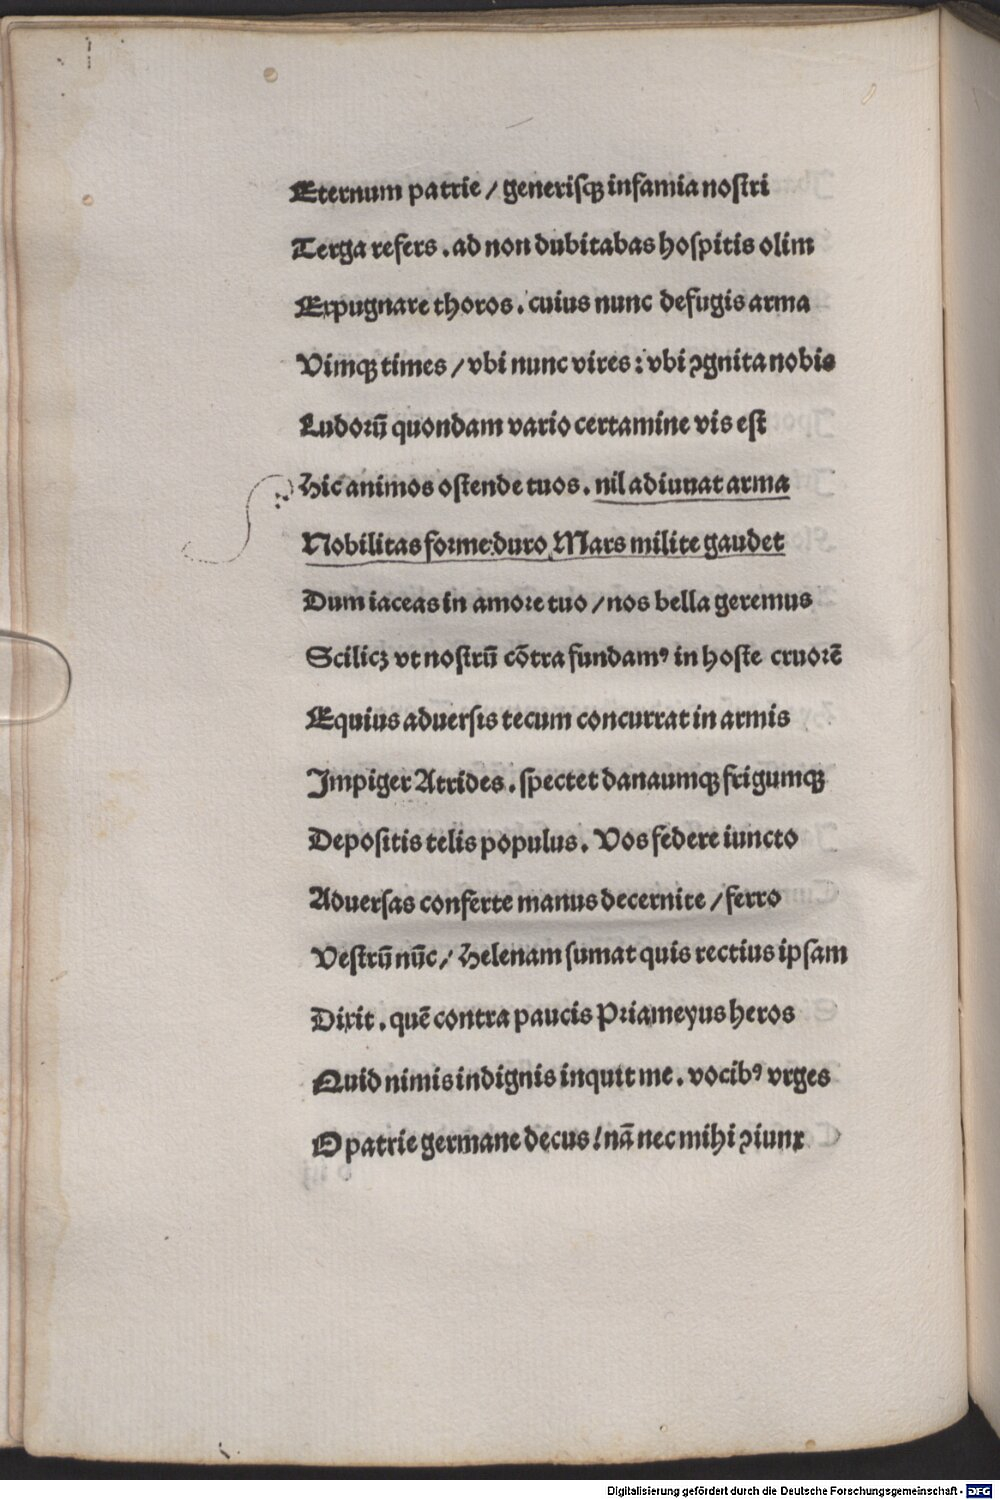 Eternum patrie / generisqꝫ infamia nostri
Terga refers . ad non dubitabas hospitis olim
Expugnare thoros . cuius nunc defugis arma
Vimqꝫ times / vbi nunc vires : vbi ꝯgnita nobis
Ludorū quondam vario certamine vis est
Hic animos ostende tuos . nil adiuuat arma
Nobilitas forme: duro Mars milite gaudet
Dum iaceas in amore tuo / nos bella geremus
Scilicꝫ vt nostrū cōtra fundamꝰ in hoste cruorē
Equius aduersis tecum concurrat in armis
Impiger Atrides . spectet danaumqꝫ frigumqꝫ
Depositis telis populus . Vos federe iuncto
Aduersas conferte manus decernite / ferro
Vestrū nūc / Helenam sumat quis rectius ipsam
Dixit . quē contra paucis Priameyus heros
Quid nimis indignis inquit me . vocibꝰ vrges
O patrie germane decus ! nā nec mihi ꝯiunx
Digitalisierung gefördert durch die Deutsche Forschungsgemeinschaft - DFG